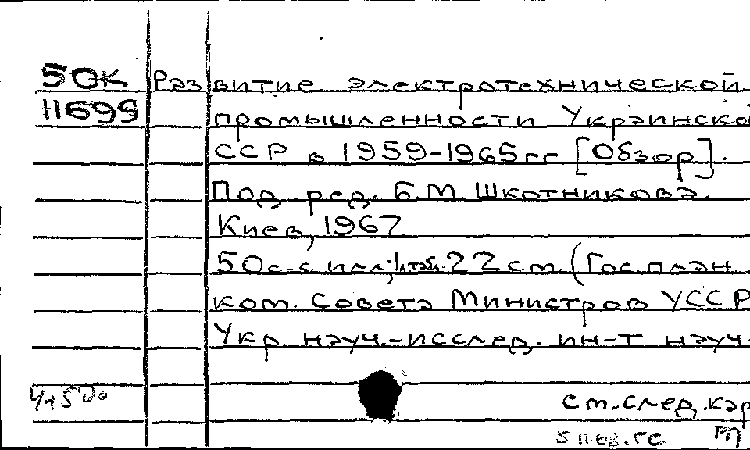 50К Развитие электротехнической
11699 промышленности Украинско
ССР в 1959-1965гг [Обзор].
Под ред. Б.М Шкотникова.
Киев, 1967
50с. с илл; 22см (Гос. план.
ком. Совета Министров УССР
Укр науч.-исслед. ин-т науч-
см. след. кар